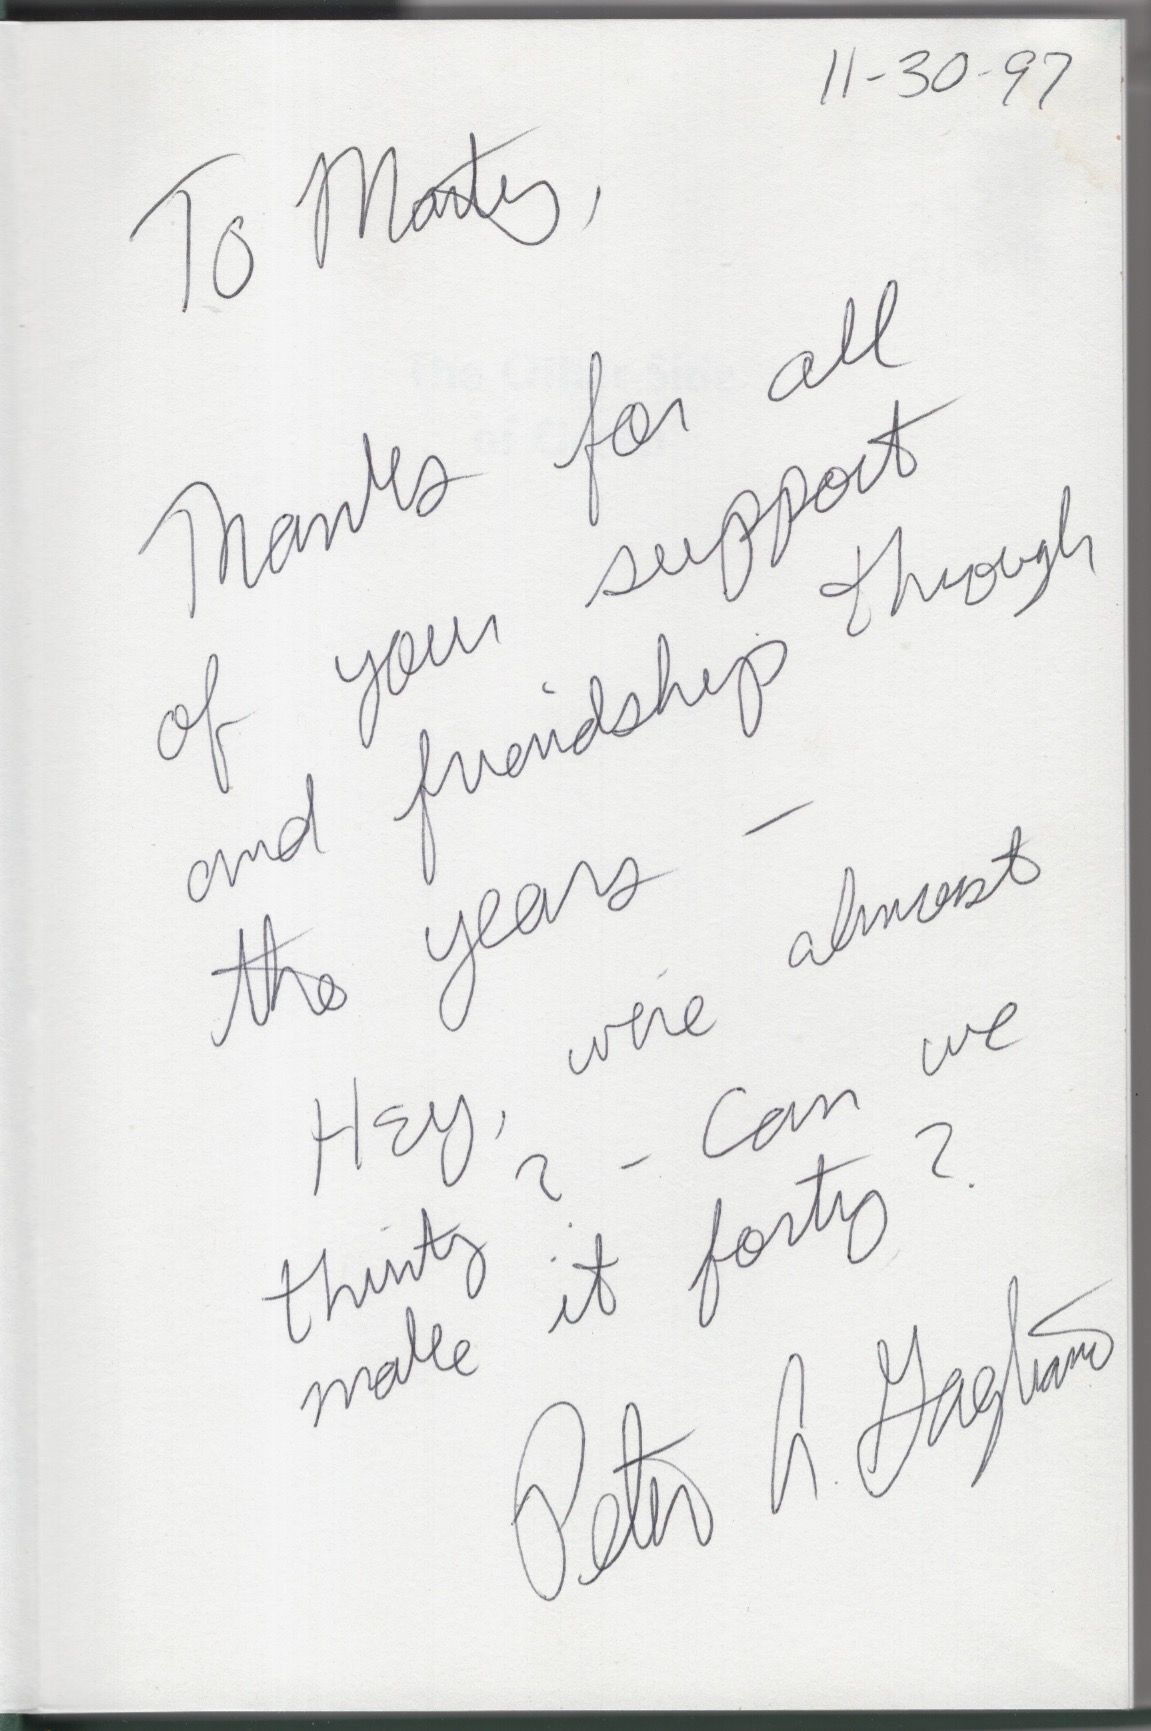 11-30-97
To Marty,
Thanks for all
of your support
and friendship through
the years —
Hey, we're almost
thirty? - Can we
make it forty?
Peter A. Gagliano